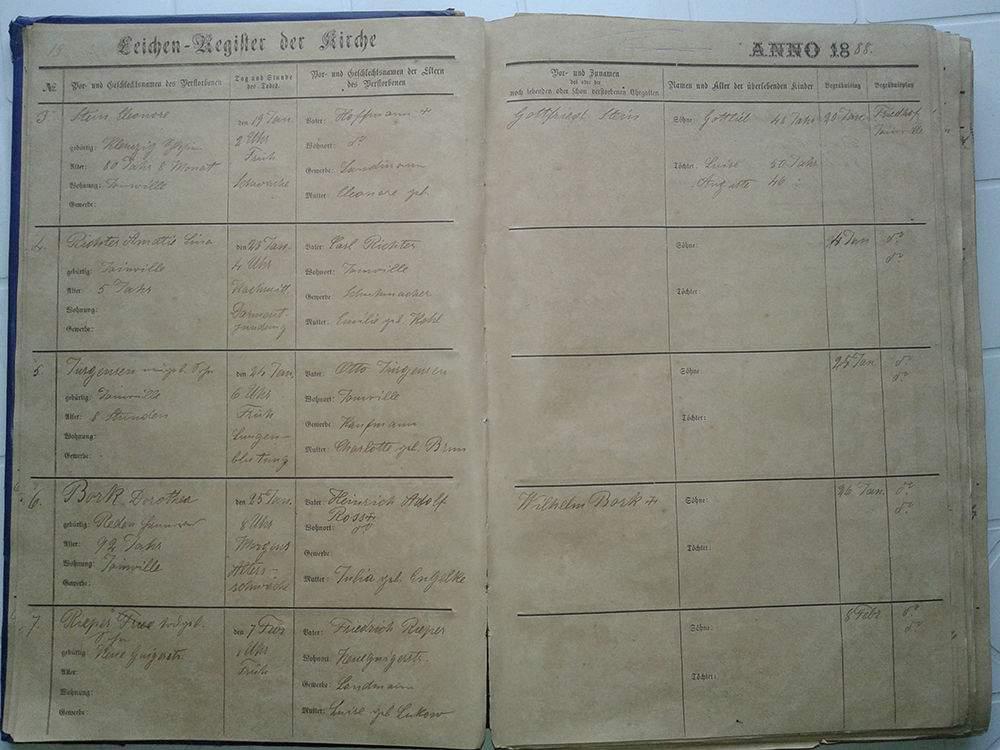 15
Leichen-Register der Kirche
ANNO 1888.
No.
Vor- und Geschlechtsnamen des Verstorbenen
Tag und Stunde des Todes.
Vor- und Geschlechtsnamen der Eltern des Verstorbenen
Vor- und Zunamen
des oder der
noch lebenden oder schon verstorbenen Ehegatten
Namen und Alter der überlebenden Kinder
Begräbnißtag
Begräbnißplatz
3.
Stein Eleonore
gebürtig:
Alter: 80 Jahr 8 Monat
Wohnung: Joinville
Gewerbe:
den 19 Jan.
2 Uhr
Früh
Schwäche
Vater: Hoffmann +
Wohnort: do
Gewerbe: Landmann
Mutter: Eleonore geb.
Gottfried Stein
Söhne: Gottlieb 48 Jahr
Töchter: Luise 50 Jahr
Auguste 46 "
20 Jan
Friedhof
Joinville
4.
Richter Amalie Lina
gebürtig: Joinville
Alter: 5 Jahr
Wohnung:
Gewerbe:
den 23 Jan.
4 Uhr
Nachmitt.
Darment-
zündung
Vater: Carl Richter
Wohnort: Joinville
Gewerbe: Schuhmacher
Mutter: Emilie geb. Kohl
Söhne:
Töchter:
Jan
do
do
5.
Jürgensen ungeb. Sohn
gebürtig: Joinville
Alter: 8 Stunden
Wohnung:
Gewerbe:
den 24 Jan.
6 Uhr
Früh
Lungen-
blutung
Vater: Otto Jürgensen
Wohnort: Joinville
Gewerbe: Kaufmann
Mutter: Charlotte geb. Brun
Söhne:
Töchter:
25 Jan
do
do
6.
Bork Dorothea
gebürtig: Reden Hannover
Alter: 92 Jahr
Wohnung: Joinville
Gewerbe:
den 25 Jan.
8 Uhr
Morgens
Alters-
schwäche
Vater: Heinrich Adolf
Ross +
Wohnort: do
Gewerbe:
Mutter: Julia geb. Engelke
Wilhelm Bork +
Söhne:
Töchter:
26 Jan.
do
do
7.
Rieper
todgeb.
Sohn
gebürtig:
Alter:
Wohnung:
Gewerbe:
den 7 Febr
1 Uhr
Früh
Vater: Friedrich Rieper
Wohnort:
Gewerbe: Landmann
Mutter: Luise geb Lukow
Söhne:
Töchter:
8 Febr
do
do